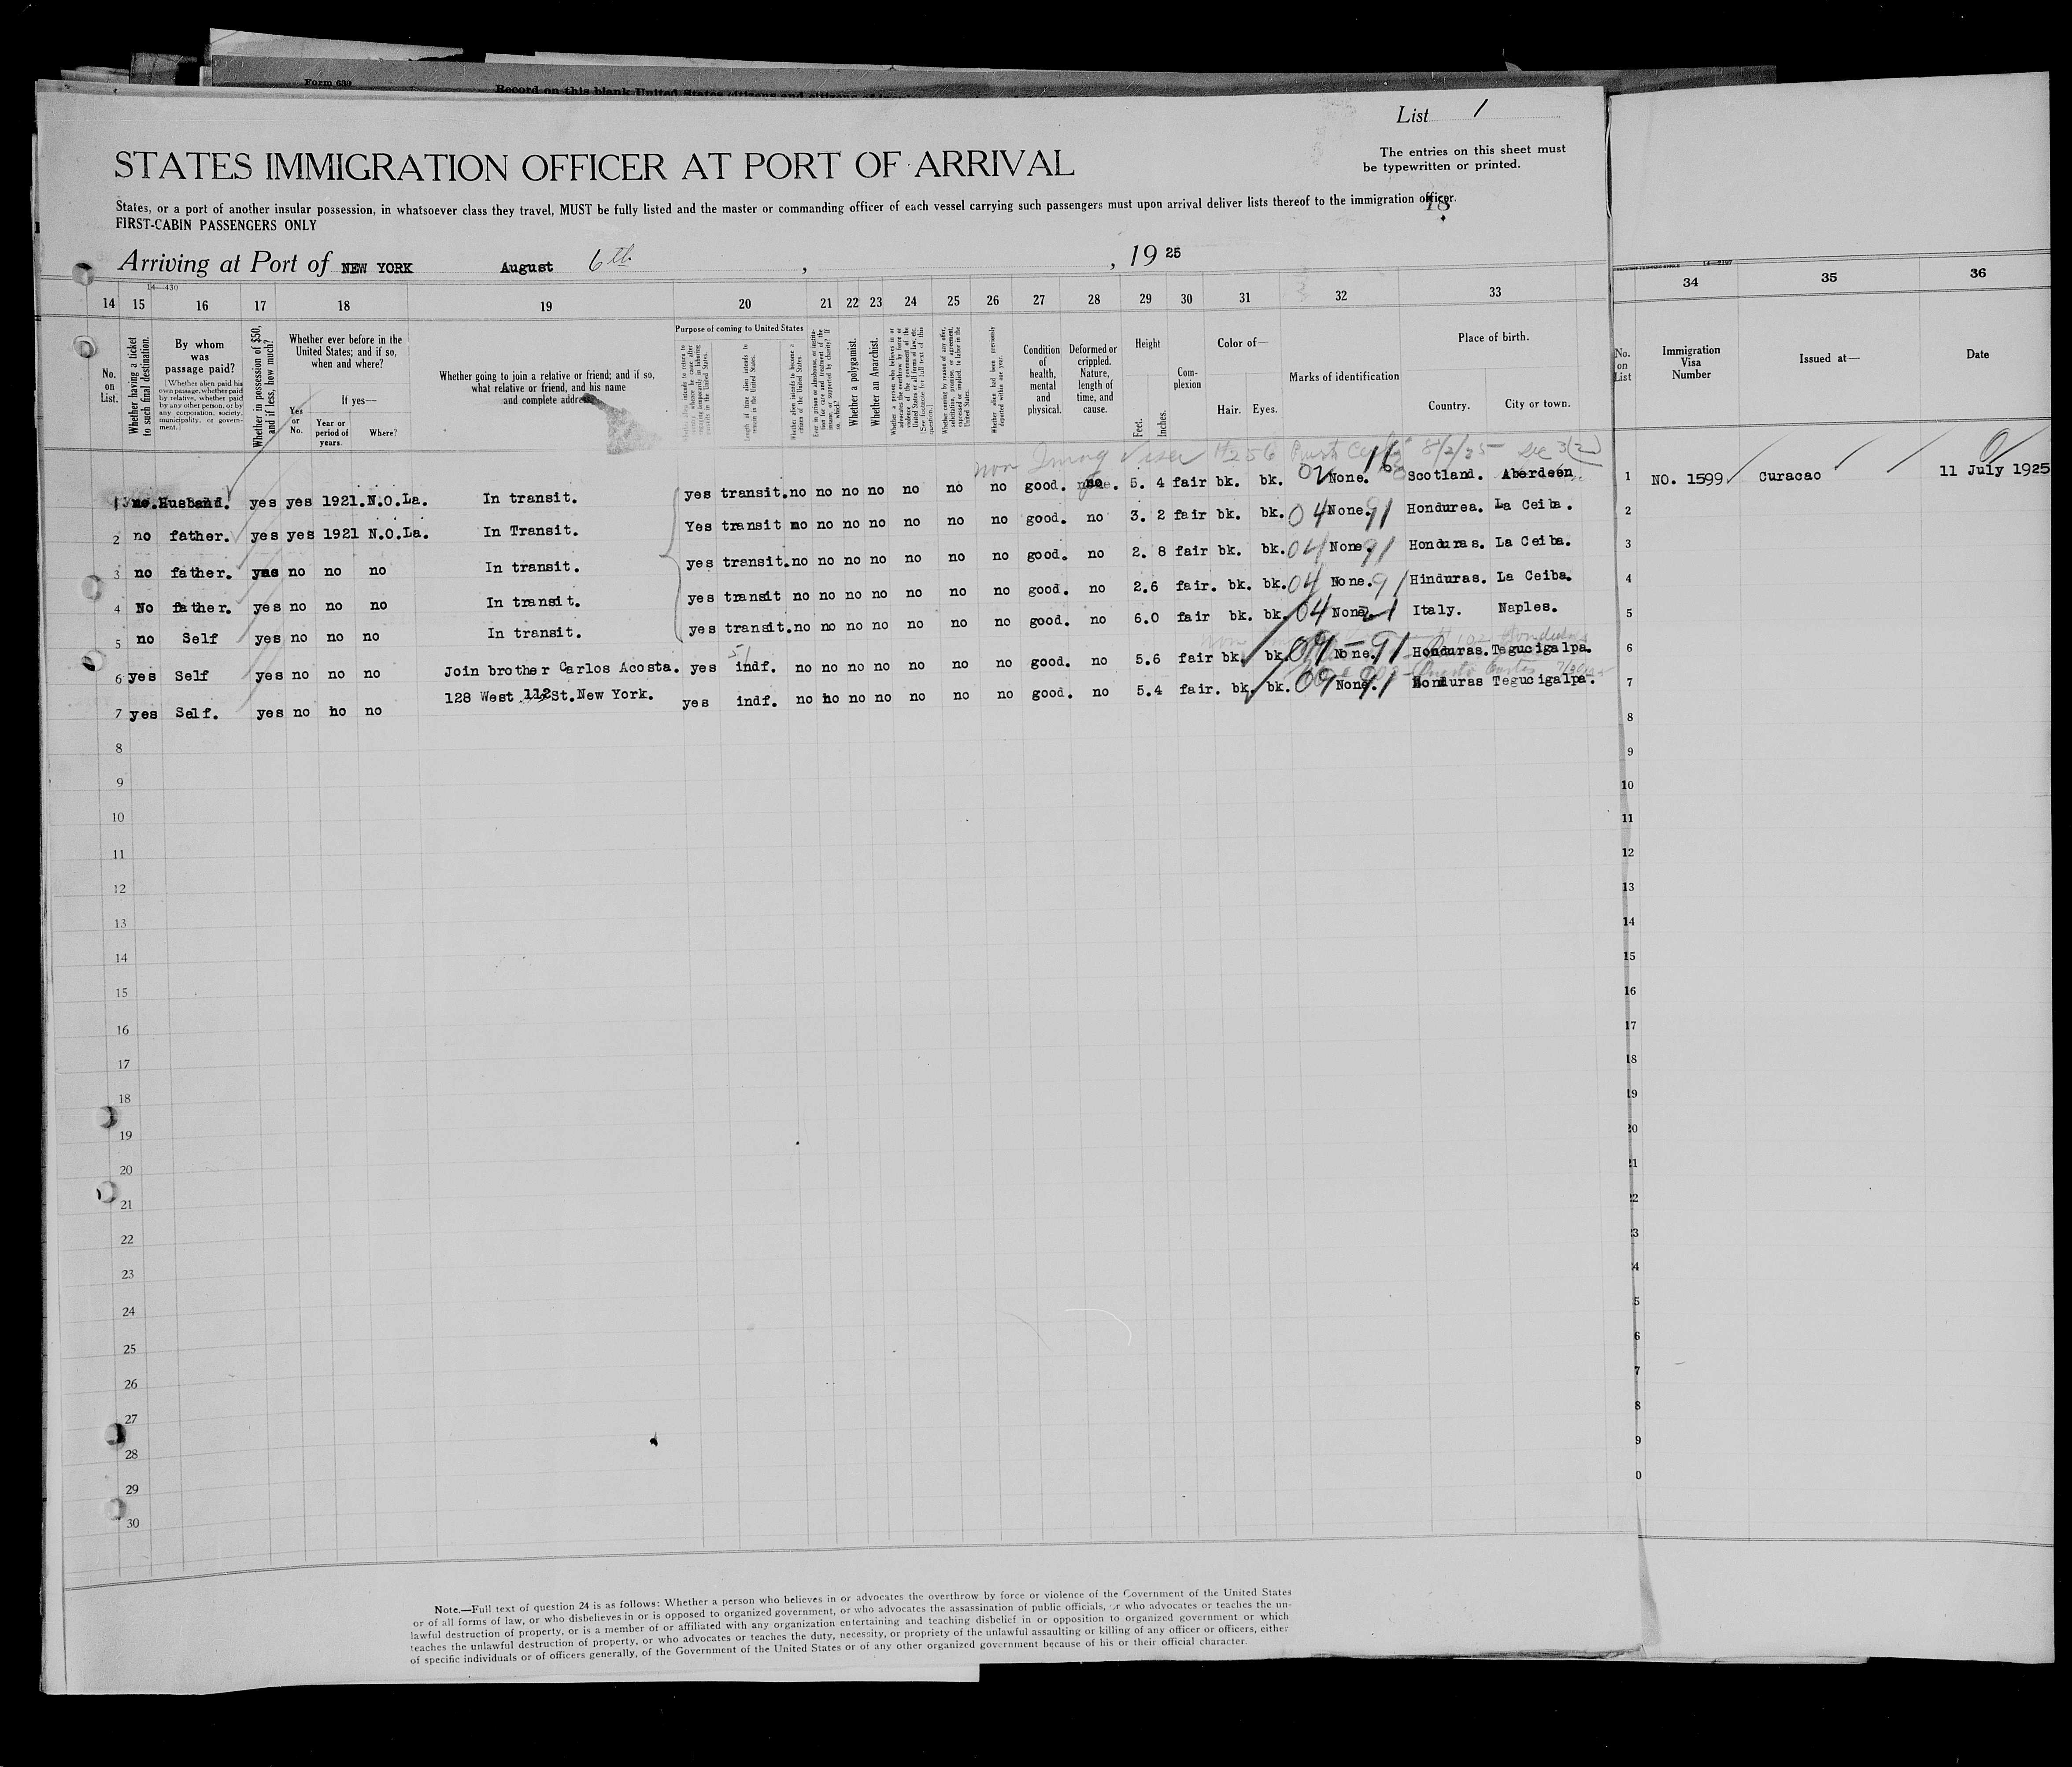 Form 630
Record on this blank United States citizens and citizens of
List 1
STATES IMMIGRATION OFFICER AT PORT OF ARRIVAL
The entries on this sheet must
be typewritten or printed.
States, or a port of another insular possession, in whatsoever class they travel, MUST be fully listed and the master or commanding officer of each vessel carrying such passengers must upon arrival deliver lists thereof to the immigration officer.
18
FIRST-CABIN PASSENGERS ONLY
Arriving at Port of NEW YORK August 6th , , 19 25
14—430
14—2197
14 15 16 17 18 19 20 21 22 23 24 25 26 27 28 29 30 31 32 33 34 35 36
No. on List.
Whether having a ticket to such final destination.
By whom was passage paid?
[Whether alien paid his own passage, whether paid by relative, whether paid by any other person, or by any corporation, society, municipality, or government.]
Whether in possession of $50, and if less, how much?
Whether ever before in the United States; and if so, when and where?
Yes or No.
If yes—
Year or period of years.
Where?
Whether going to join a relative or friend; and if so, what relative or friend, and his name and complete address
Purpose of coming to United States
Length of time alien intends to remain in the United States.
Whether alien intends to become a citizen of the United States.
Whether a polygamist.
Whether an Anarchist.
Whether alien had been previously deported within one year.
Condition of health, mental and physical.
Deformed or crippled. Nature, length of time, and cause.
Height
Feet.
Inches.
Complexion
Color of—
Hair. Eyes.
Marks of identification
Place of birth.
Country. City or town.
No. on List
Immigration Visa Number
Issued at—
Date
non Immig Visa 8/2/25 Sec 3(2)
1 no. Husband. yes yes 1921. N.O.La. In transit. yes transit. no no no no no no no good. 5. 4 fair bk. bk. 02 None. Scotland. Aberdeen 1 NO. 1599 Curacao 11 July 1925
2 no father. yes yes 1921 N.O.La. In Transit. Yes transit no no no no no no no good. no 3. 2 fair bk. bk. 04 None. 91 Hondurea. La Ceiba. 2
3 no father. yes no no no In transit. yes transit. no no no no no no no good. no 2. 8 fair bk. bk. 04 None 91 Honduras. La Ceiba. 3
4 No father. yes no no no In transit. yes transit no no no no no no no good. no 2.6 fair. bk. bk. 04 None. 91 Hinduras. La Ceiba. 4
5 no Self yes no no no In transit. yes transit. no no no no no no no good. no 6.0 fair bk. bk. 04 None 21 Italy. Naples. 5
6 yes Self yes no no no Join brother Carlos Acosta. yes 51 indf. no no no no no no no good. no 5.6 fair bk. bk. 09 None. 91 Honduras. Tegucigalpa. 6
7 yes Self. yes no ho no 128 West 112 St. New York. yes indf. no ho no no no no no good. no 5.4 fair. bk. bk. 09 None. 91 Honduras Tegucigalpa. 7
8 8
9 9
10 10
11 11
12 12
13 13
14 14
15 15
16 16
17 17
18 18
19 19
20 20
21 21
22 22
23 23
24 4
25 5
26 6
27 7
28 8
29 9
30 0
Note.—Full text of question 24 is as follows: Whether a person who believes in or advocates the overthrow by force or violence of the Government of the United States
or of all forms of law, or who disbelieves in or is opposed to organized government, or who advocates the assassination of public officials, or who advocates or teaches the un-
lawful destruction of property, or is a member of or affiliated with any organization entertaining and teaching disbelief in or opposition to organized government or which
teaches the unlawful destruction of property, or who advocates or teaches the duty, necessity, or propriety of the unlawful assaulting or killing of any officer or officers, either
of specific individuals or of officers generally, of the Government of the United States or of any other organized government because of his or their official character.